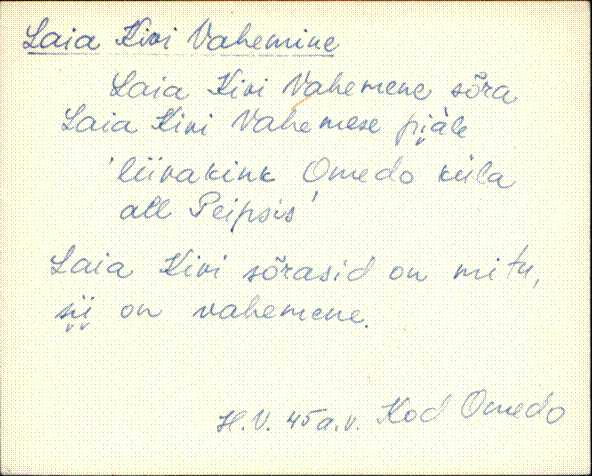 Laia Kivi Vahemine
Laia Kivi Vahemene sõra
Laia Kivi Vahemese pi̬i̬äle
'liivakink Omedo küla
all Peipsis'
Laia Kivi sõrasid on mitu,
si̬i̬ on vahemene.
H.V. 45 a.v. Kod Omedo